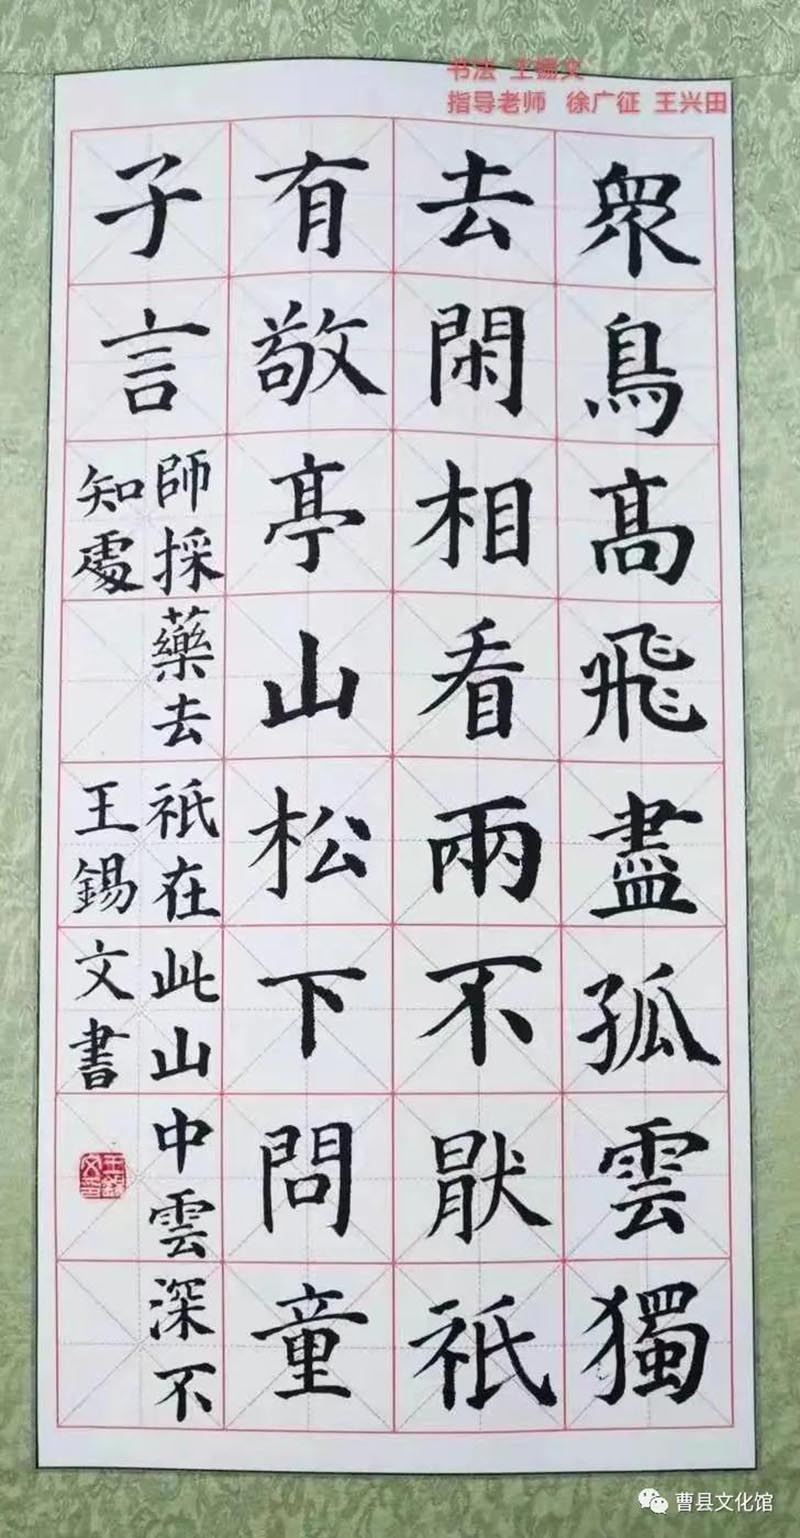 书法 王锡文
指导老师 徐广征 王兴田
眾鳥髙飛盡孤雲獨
去閑相看兩不猒祇
有敬亭山松下問童
子言
師採藥去祇在此山中雲深不
知處 王錫文書
曹县文化馆